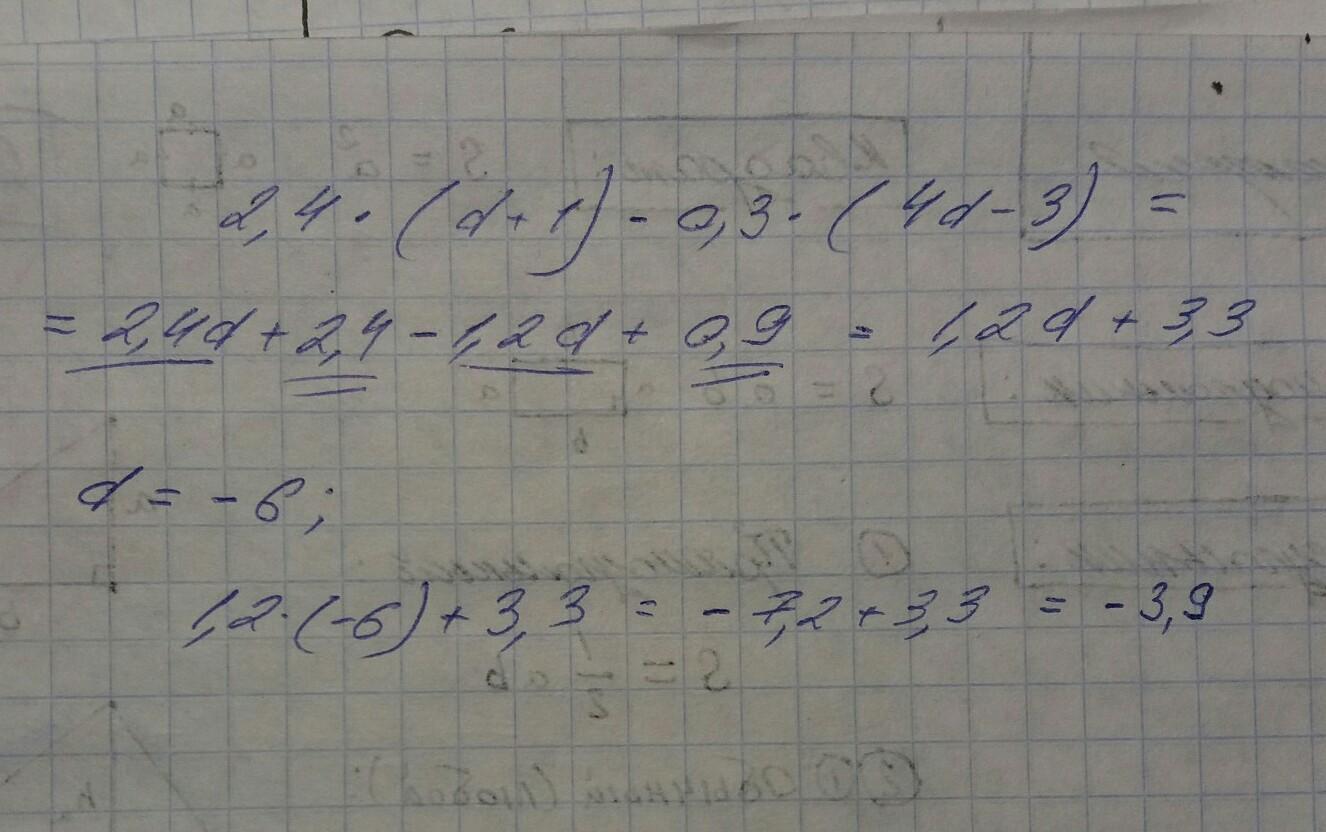 2,4 · (d + 1) - 0,3 · (4d - 3) =
= 2,4d + 2,4 - 1,2d + 0,9 = 1,2d + 3,3
d = -6;
1,2 · (-6) + 3,3 = -7,2 + 3,3 = -3,9